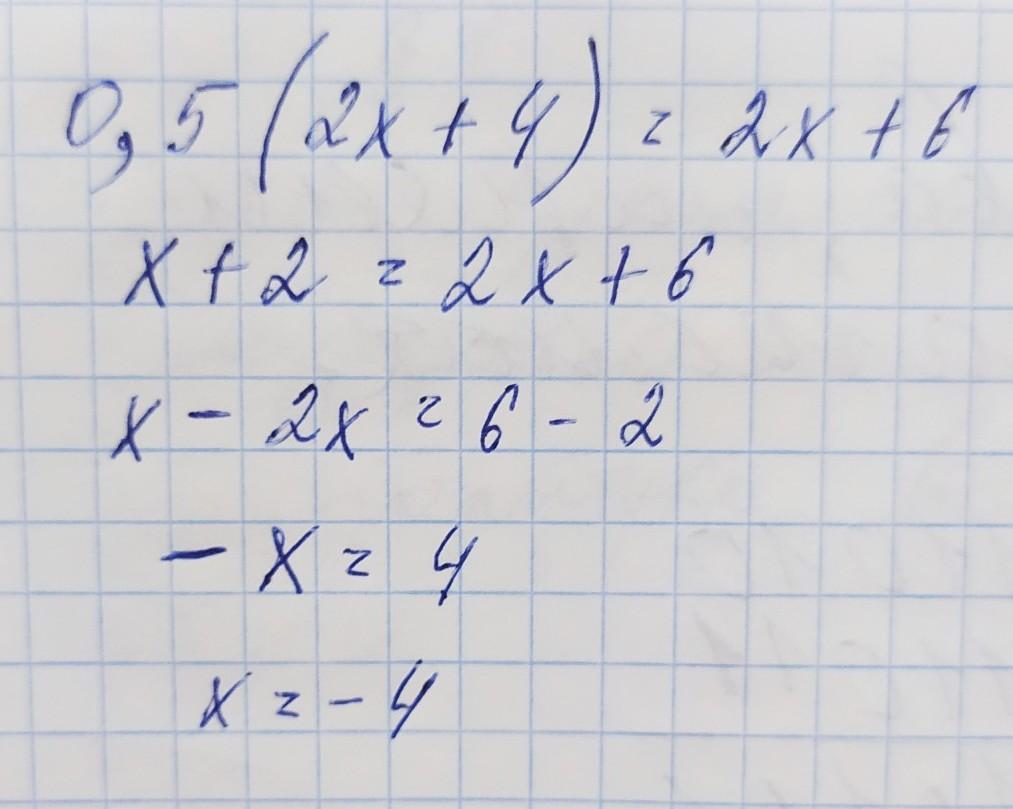 0,5(2x+4)=2x+6
x+2=2x+6
x-2x=6-2
-x=4
x=-4